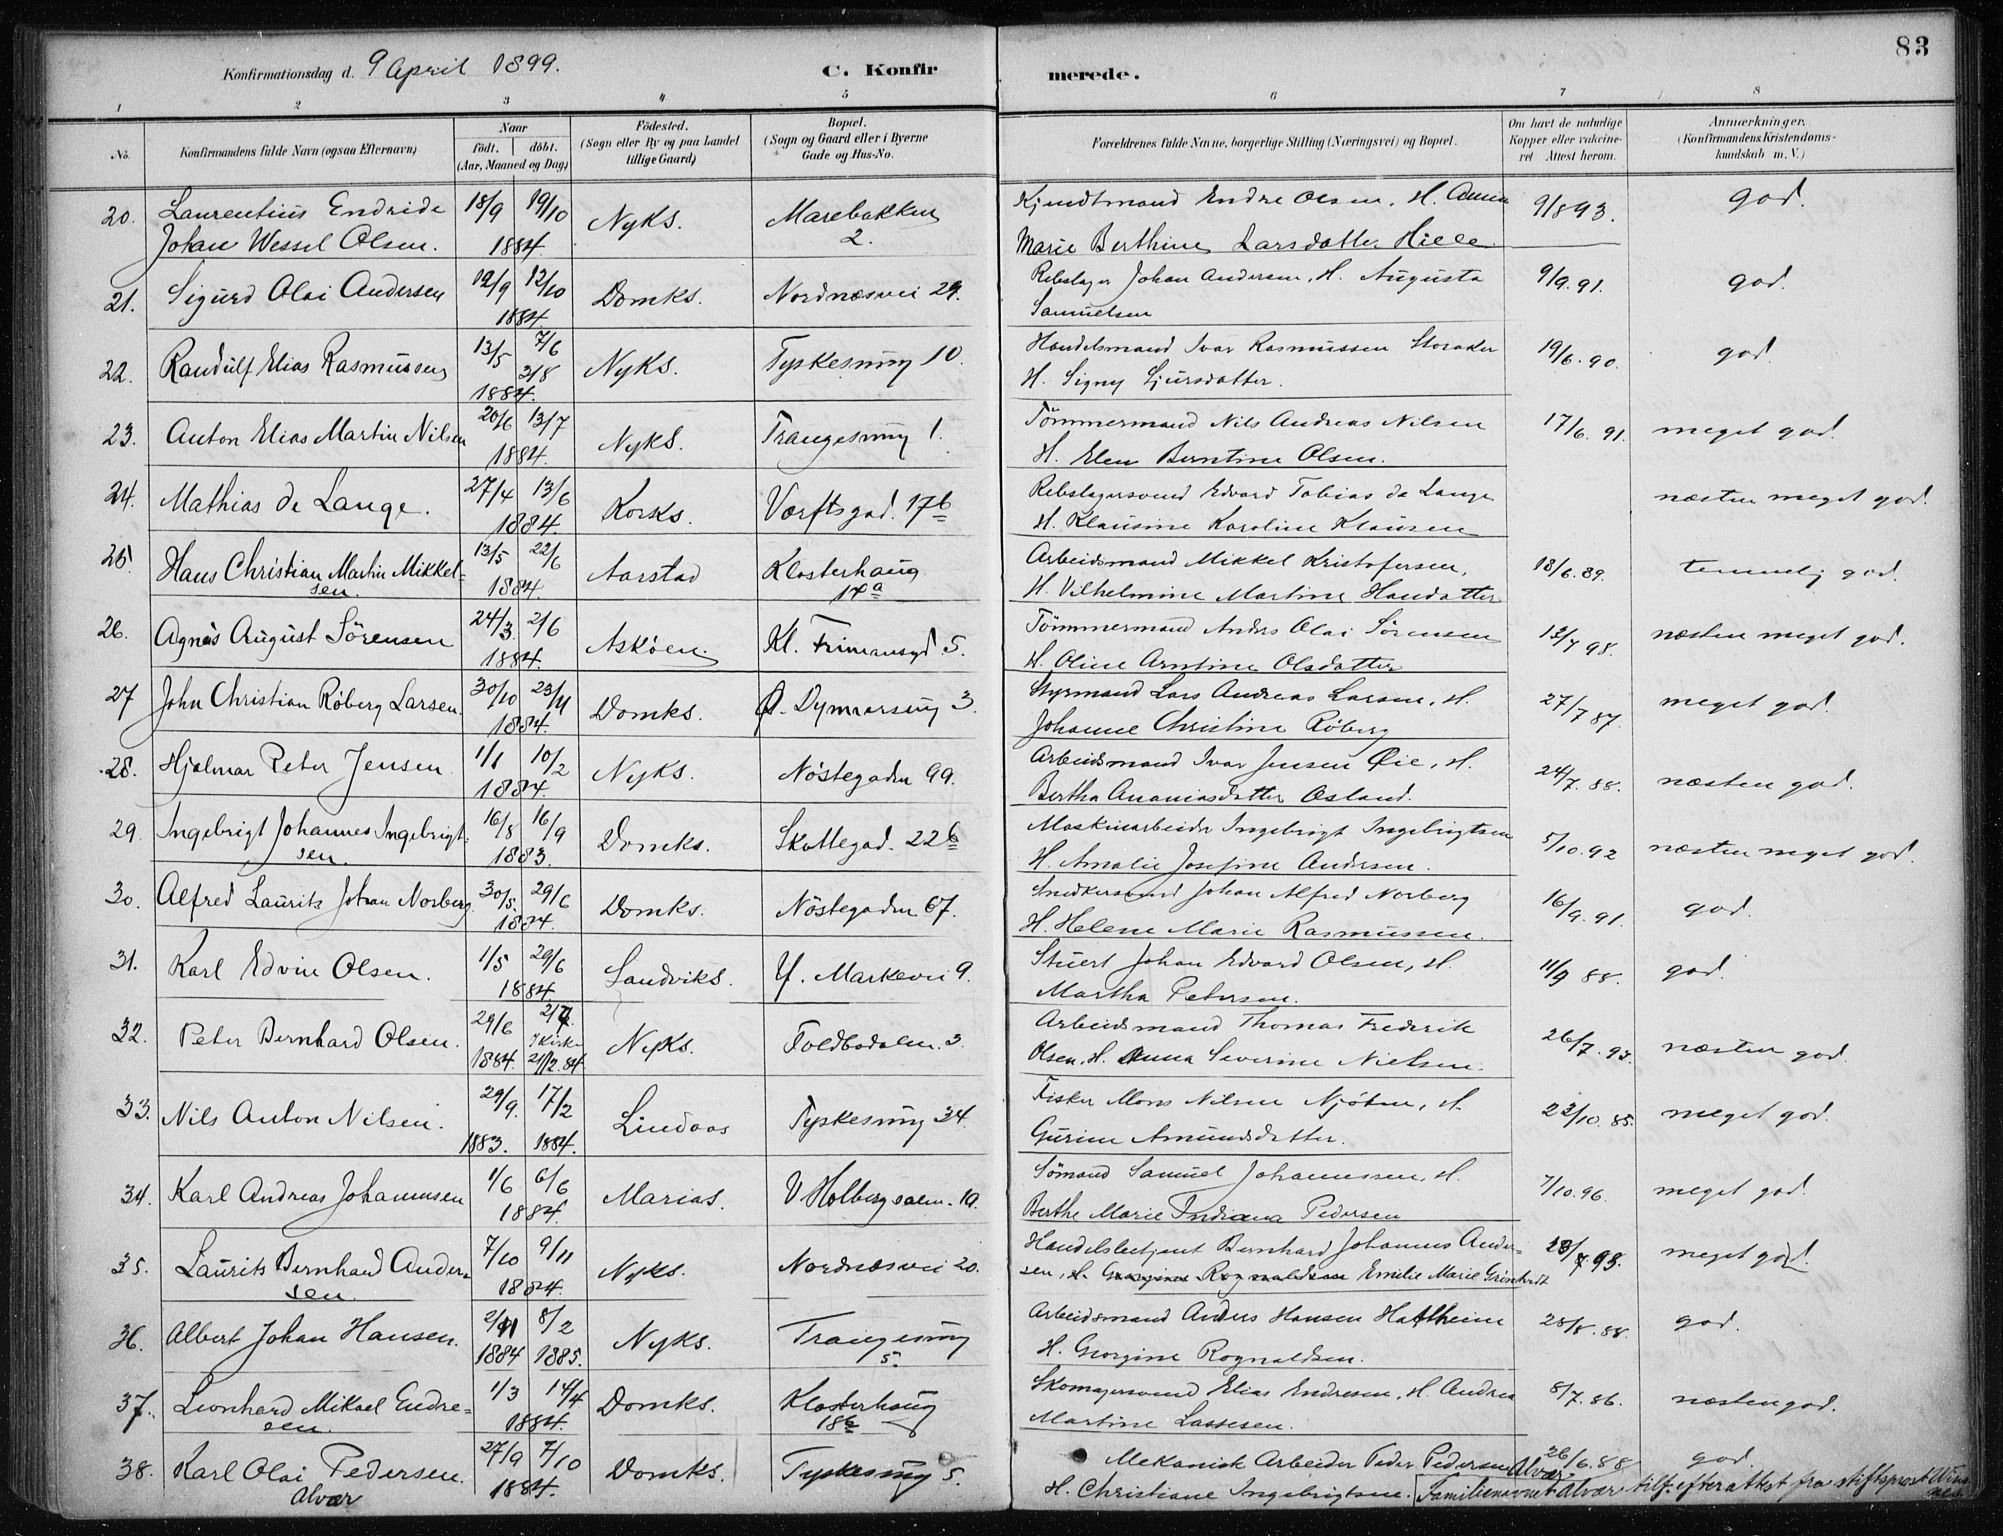 83
Konfirmationsdag d. 9 April 1899. C. Konfirmerede.
1 2 3 4 5 6 7 8
No. Konfirmandens fulde Navn (ogsaa Efternavn) Naar født. døbt. (Aar, Maaned og Dag) Fødested. (Sogn eller By og paa Landet tillige Gaard) Bopæl. (Sogn og Gaard eller i Byerne Gade og Hus-No. Forældrenes fulde Navne, borgerlige Stilling (Næringsvei) og Bopæl. Om havt de naturlige Kopper eller vakcineret Attest herom. Anmærkninger. (Konfirmandens Kristendomskundskab m. V.)
20. Laurentius Endride 18/9 19/10 Nyks. Marebakken Endre Olsen, H. 9/8 93. god.
Johan Wessel Olsen. 1884. 2. Marie Berthine Larsdatter Hille
21. Sigurd Olai Andersen 12/9 12/10 Domks. Nordnæsvei 29. Rebslager Johan Andersen, H. Augusta 9/9. 91. god.
1884. Samuelsen
22. Randulf Elias Rasmussen 13/5 7/6 Nyks. Tyskesmug 10. Handelsmand Ivar Rasmussen Storaker 19/6. 90. god
3/8 1884. H. Signy Sjursdatter.
23. Anton Elias Martin Nilsen 20/6 13/7 Nyks. Trangesmug 1. Tömmermand Nils Andreas Nilsen 17/6. 91. meget god.
1884. H. Elen Berntine Olsen.
24. Mathias de Lange. 27/4 13/6 Korsks. Værftsgad. 17b Rebslagersvend Edvard Tobias de Lange næsten meget god.
1884. H. Klausine Karoline Klausen
25. Hans Christian Martin Mikkel- 13/5 22/6 Aarstad Klosterhaug Arbeidsmand Mikkel Kristofersen, 18/6. 89. temmelig god.
sen. 1884 17a H. Vilhelmine Martine Hansdatter
26. Agnäs August Sörensen 24/3. 2/6 Askøen. Kl. 5. Tömmermand Anders Olai Sörensen 12/7 98. næsten meget god.
1884. H. Oline Arntine Olsdatter
27 John Christian Røberg Larsen. 30/10 23/11 Domks. Dymarsmug 3. Styrmand Lars Andreas Larsen, H. 27/7 87. meget god.
1884. Johanne Christine Røberg
28. Hjalmar Peter Jensen 1/1 10/2 Nyks. Nöstegaden 99. Arbeidsmand Ivar Jensen Øie, H. 24/7. 88. næsten god.
1884. Bertha Ananiasdatter Øsland.
29. Ingebrigt Johannes Ingebrigt- 16/8 16/9 Domks. Skottegad. 22b Maskinarbeider Ingebrigt Ingebrigtsen 5/10. 92 næsten meget god.
sen. 1883. H. Amalie Josefine Andersen.
30. Alfred Laurits Johan Norberg 30/5. 29/6 Domks. Nöstegaden 67. Snedkersvend Johan Alfred Norberg 16/9. 91. god.
1884. H. Helene Marie Rasmussen.
31. Karl Edvin Olsen. 1/5 29/6 Sandviks. Y. Markevei 9. Stuert Johan Edvard Olsen, H. 11/9 88. god.
1884. Martha Petersen.
32. Peter Bernhard Olsen. 29/6 2/7. Nyks. Toldbodalm. 3. Arbeidsmand Thomas Frederik 26/7. 93. næsten god.
1884. I Kirke 21/12.84. Olsen, H. Anna Severine Nielsen.
33. Nils Anton Nilsen. 29/9. 17/2 Lindaas Tyskesmug 34. Fisker Mons Nilsen Njöten, H. 22/10. 85. meget god.
1883. 1884. Gurine Amundsdatter.
34. Karl Andreas Johannesen 1/6 6/6 Marias. V Holbergsalm. 19. Sömand Samuel Johannessen, H. 7/10. 96. meget god.
1884. Berthe Marie Indiana Pedersen
35. Laurits Bernhard Ander- 7/10 9/11 Nyks. Nordnæsvei 20. Handelsbetjent Bernhard Johannes Ander- 28/7. 93. meget god.
sen. 1884. sen, H. Georgine Rognaldsen Emilie Marie
36. Albert Johan Hansen. 2/11 8/2 Nyks. Trangesmug Arbeidsmand Anders Hansen Hatlheim 28/8. 88. god.
1884 1885. 5. H. Georgine Rognaldsen.
37. Leonhard Mikael Endre- 1/3 14/4 Domks. Klosterhaug Skomagersvend Elias Endresen, H. Andrea 8/7. 86. næsten god.
sen. 1884. 18b Martine Lassesen.
38. Karl Olai Pedersen. 27/9 7/10 Domks. Tyskesmug 5. Mekanisk Arbeider Peder Pedersen Alvær. 26/6. 88 god
Alvær 1884. H. Christiane Ingebrigtsen. Familienavnet Alvær tilf. efter attest fra stiftsprost